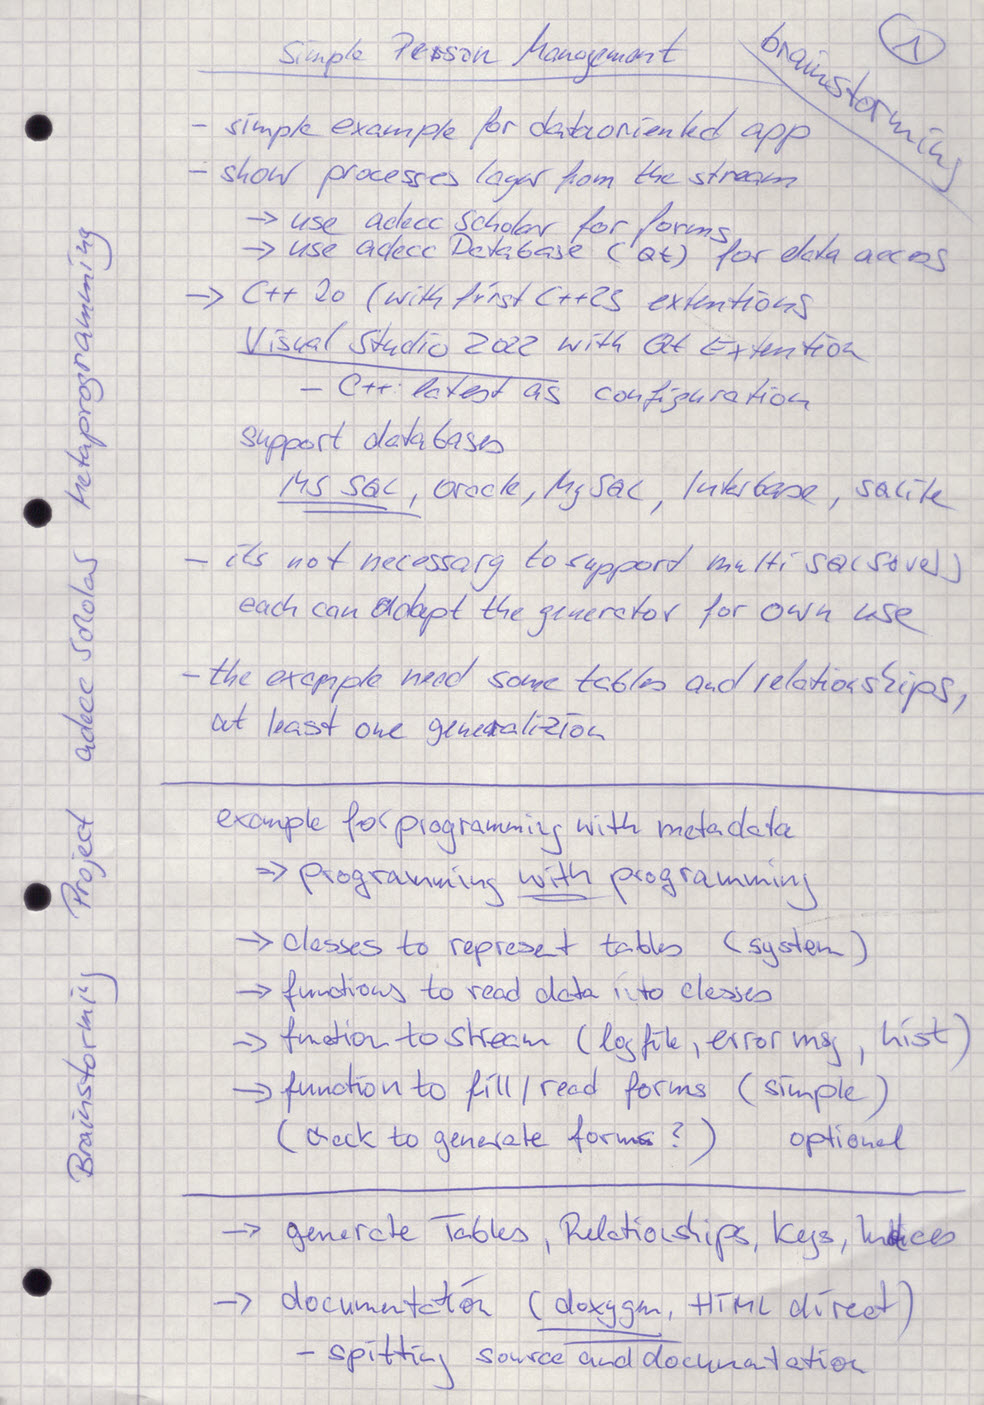 1
brainstorming
Simple Person Management
- simple example for dataoriented app
- show processes layer from the stream
-> use adecc Scholar for forms
-> use adecc Database (Qt) for data acces
-> C++ 20 (with first C++23 extentions
Visual Studio 2022 with Qt Extention
- C++ latest as configuration
support databases
MS SQL, Oracle, MySQL, Interbase, SQLite
- its not necessary to support multi
each can adapt the generator for own use
- the example need some tables and relationships,
at least one generalizion
example for programming with metadata
=> programming with programming
-> classes to represent tables (system)
-> functions to read data into classes
-> function to stream (logfile, error msg, hist)
-> function to fill/read forms (simple)
(check to generate forms?) optional
-> generate Tables, Relationships, Keys, Indices
-> documentation (doxygen, HTML direct)
- spitting source and documentation
Brainstorming Project adecc Scholar Metaprogramming